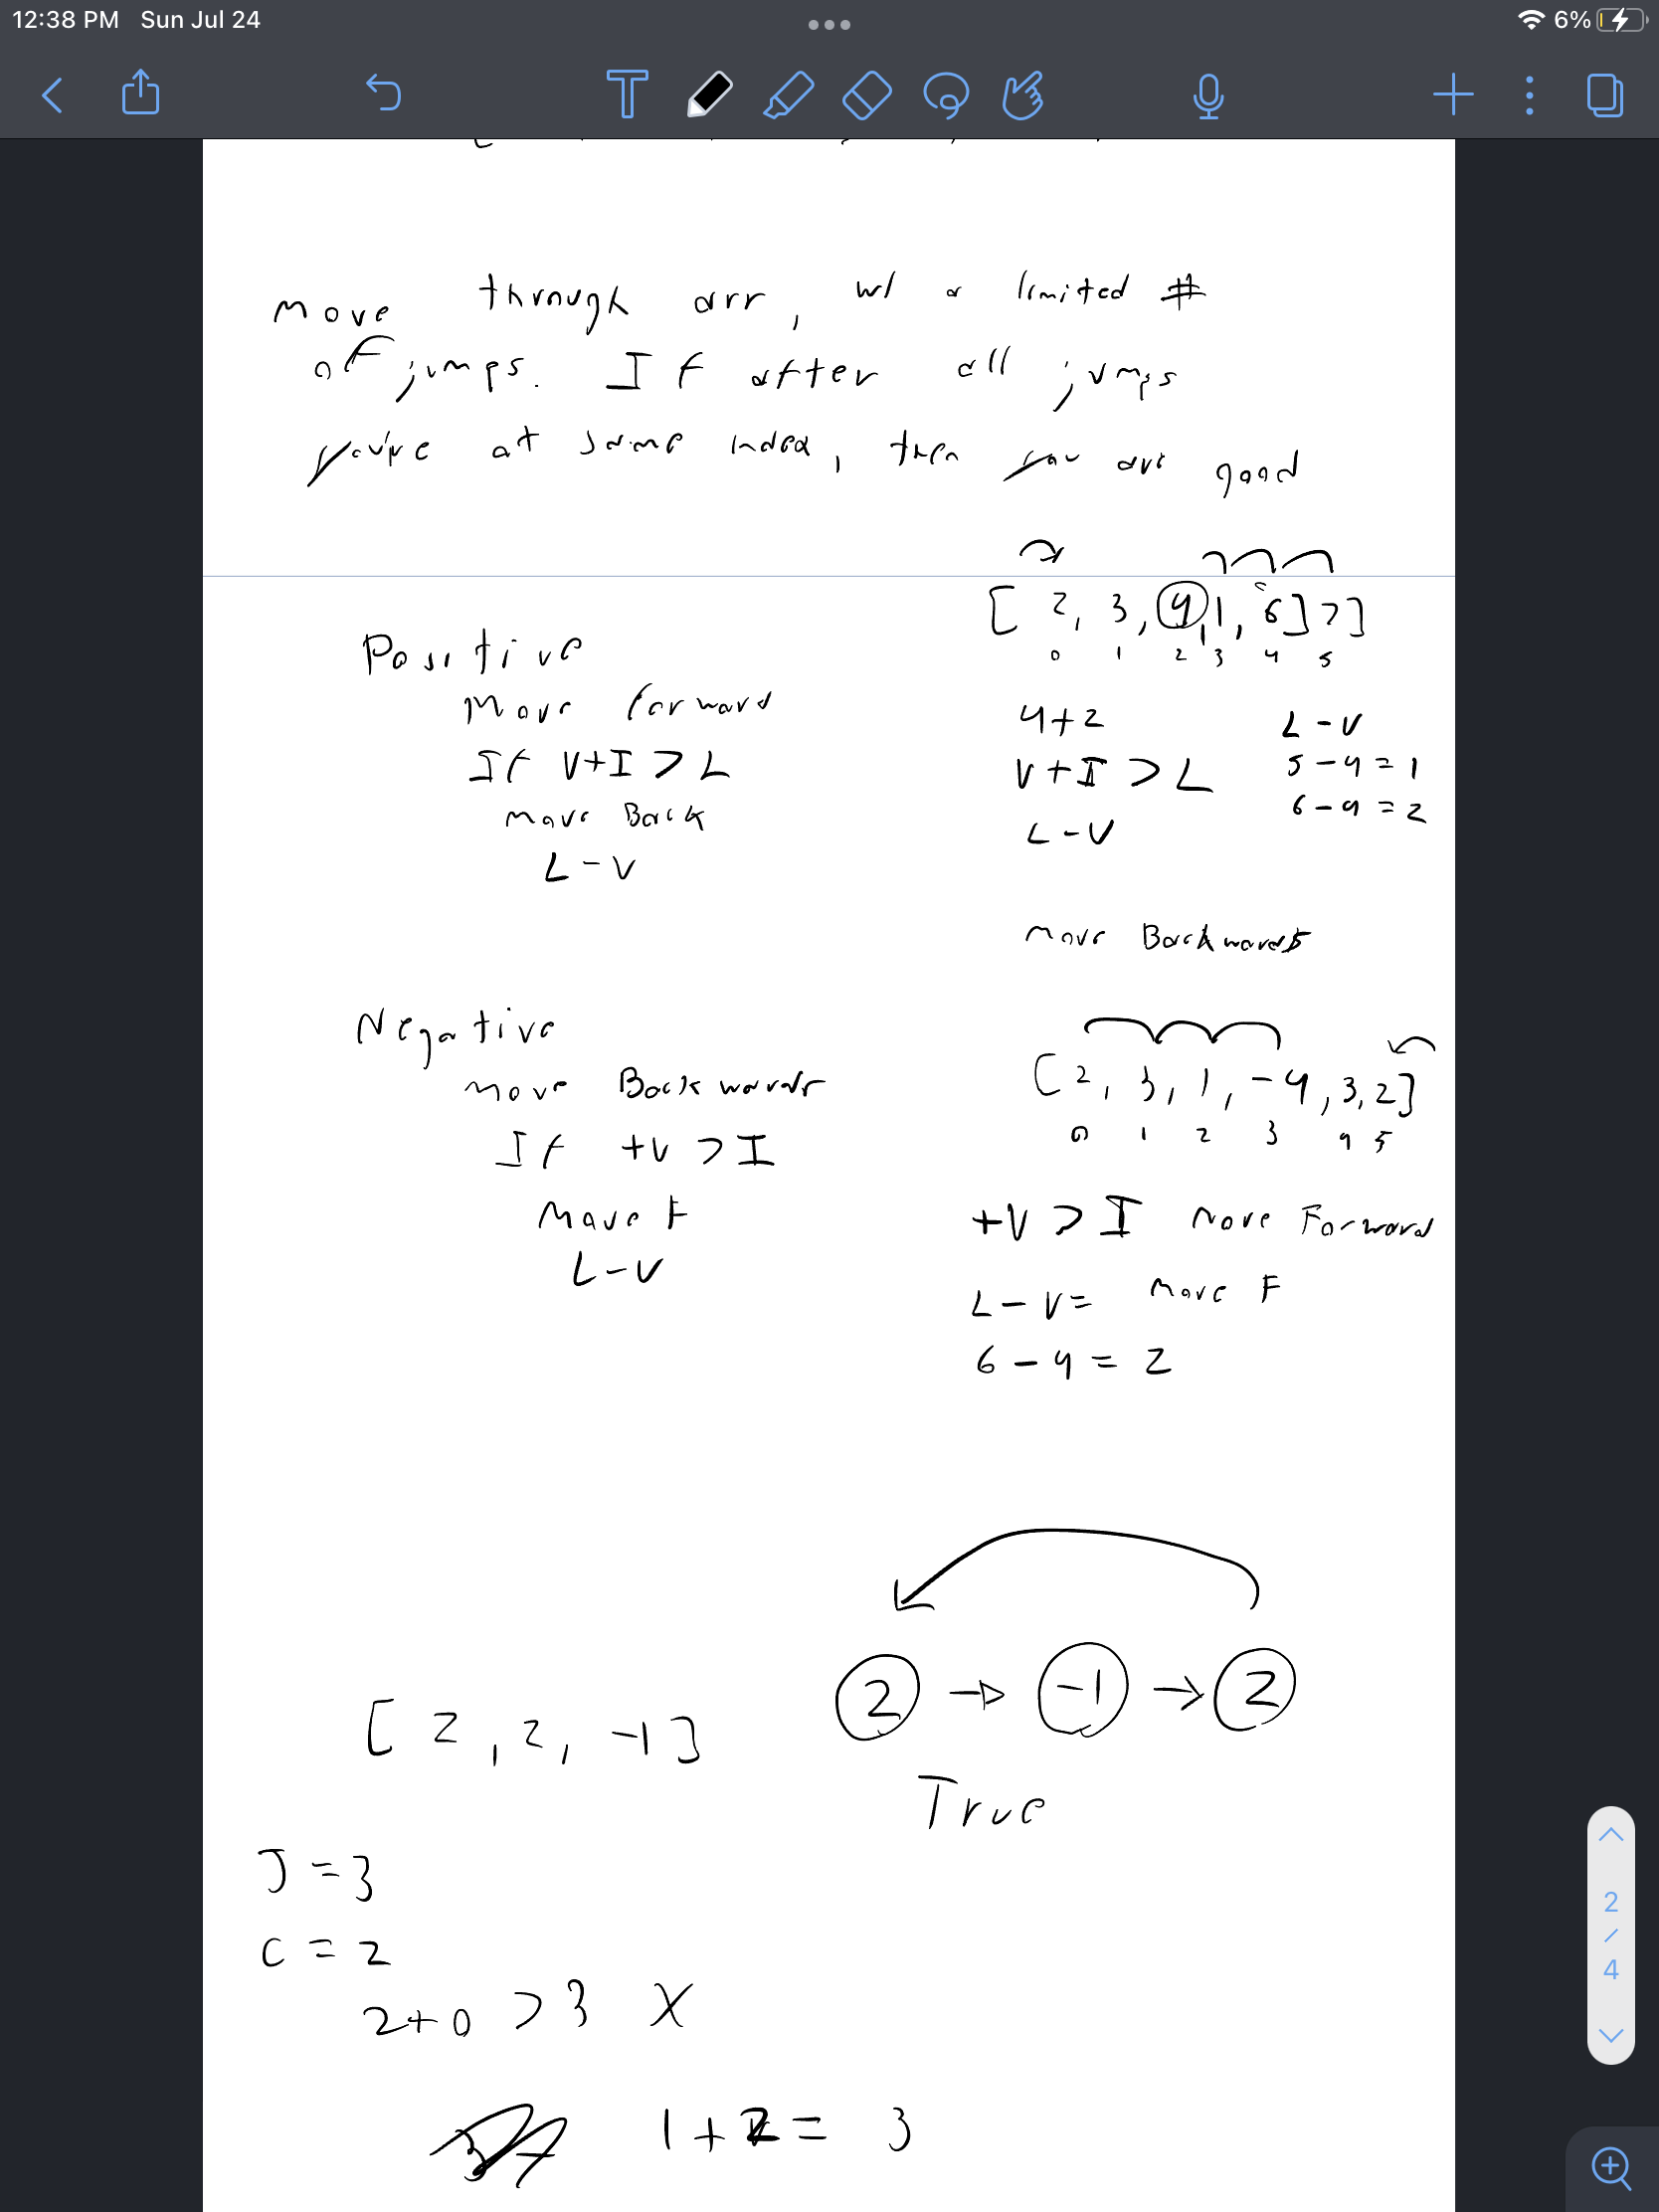 12:38 PM Sun Jul 24
6%
T
move through arr, w/ a limited #
of jumps. If after all jumps
you're at same index, then you are good
[2, 3, 4, 1, 6] 7]
0 1 2 3 4 5
Positive
Move forward
If V+I > L
move Back
L-V
4+2
V+I > L
L-V
L-V
5-4=1
6-4=2
move Backwards
Negative
move Backwards
If +V > I
Move F
L-V
[2, 3, 1, -4, 3, 2]
0 1 2 3 4 5
+V > I Move Forward
L-V= Move F
6-4=2
[2, 2, -1]
2 → -1 → 2
True
J=3
C=2
2+0 > 3 X
1+2=3
2
/
4